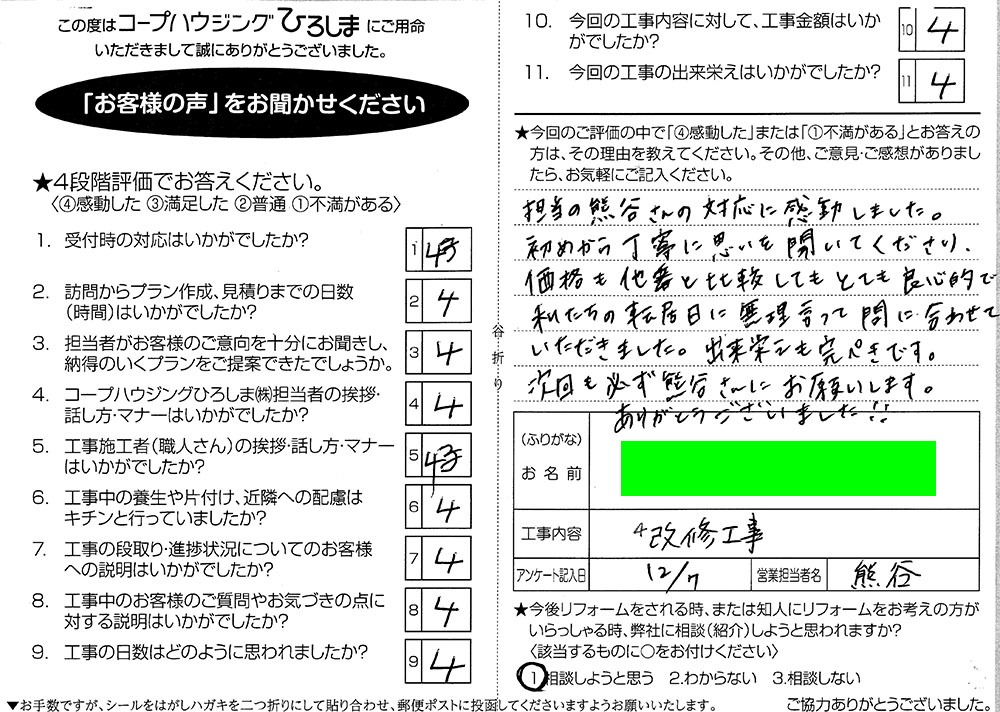 この度はコープハウジングひろしまにご用命
いただきまして誠にありがとうございました。
「お客様の声」をお聞かせください
★4段階評価でお答えください。
〈④感動した ③満足した ②普通 ①不満がある〉
1. 受付時の対応はいかがでしたか?
1 4
2. 訪問からプラン作成、見積りまでの日数
(時間)はいかがでしたか?
2 4
3. 担当者がお客様のご意向を十分にお聞きし、
納得のいくプランをご提案できたでしょうか。
3 4
4. コープハウジングひろしま㈱担当者の挨拶・
話し方・マナーはいかがでしたか?
4 4
5. 工事施工者(職人さん)の挨拶・話し方・マナー
はいかがでしたか?
5 4
6. 工事中の養生や片付け、近隣への配慮は
キチンと行っていましたか?
6 4
7. 工事の段取り・進捗状況についてのお客様
への説明はいかがでしたか?
7 4
8. 工事中のお客様のご質問やお気づきの点に
対する説明はいかがでしたか?
8 4
9. 工事の日数はどのように思われましたか?
9 4
谷折り
10. 今回の工事内容に対して、工事金額はいか
がでしたか?
10 4
11. 今回の工事の出来栄えはいかがでしたか?
11 4
★今回のご評価の中で「④感動した」または「①不満がある」とお答えの
方は、その理由を教えてください。その他、ご意見・ご感想がありまし
たら、お気軽にご記入ください。
担当の熊谷さんの対応に感動しました。
初めから丁寧に思いを聞いてくださり、
価格も他番と比較してもとても良心的で
私たちの転居日に無理言って間に合わせて
いただきました。出来栄えも完ぺきです。
次回も必ず熊谷さんにお願いします。
ありがとうございました!!
(ふりがな)
お名前
工事内容 改修工事
アンケート記入日 12/7 営業担当者名 熊谷
★今後リフォームをされる時、または知人にリフォームをお考えの方が
いらっしゃる時、弊社に相談(紹介)しようと思われますか?
〈該当するものに○をお付けください〉
1 相談しようと思う 2.わからない 3.相談しない
▼お手数ですが、シールをはがしハガキを二つ折りにして貼り合わせ、郵便ポストに投函してくださいますようお願いいたします。
ご協力ありがとうございました。